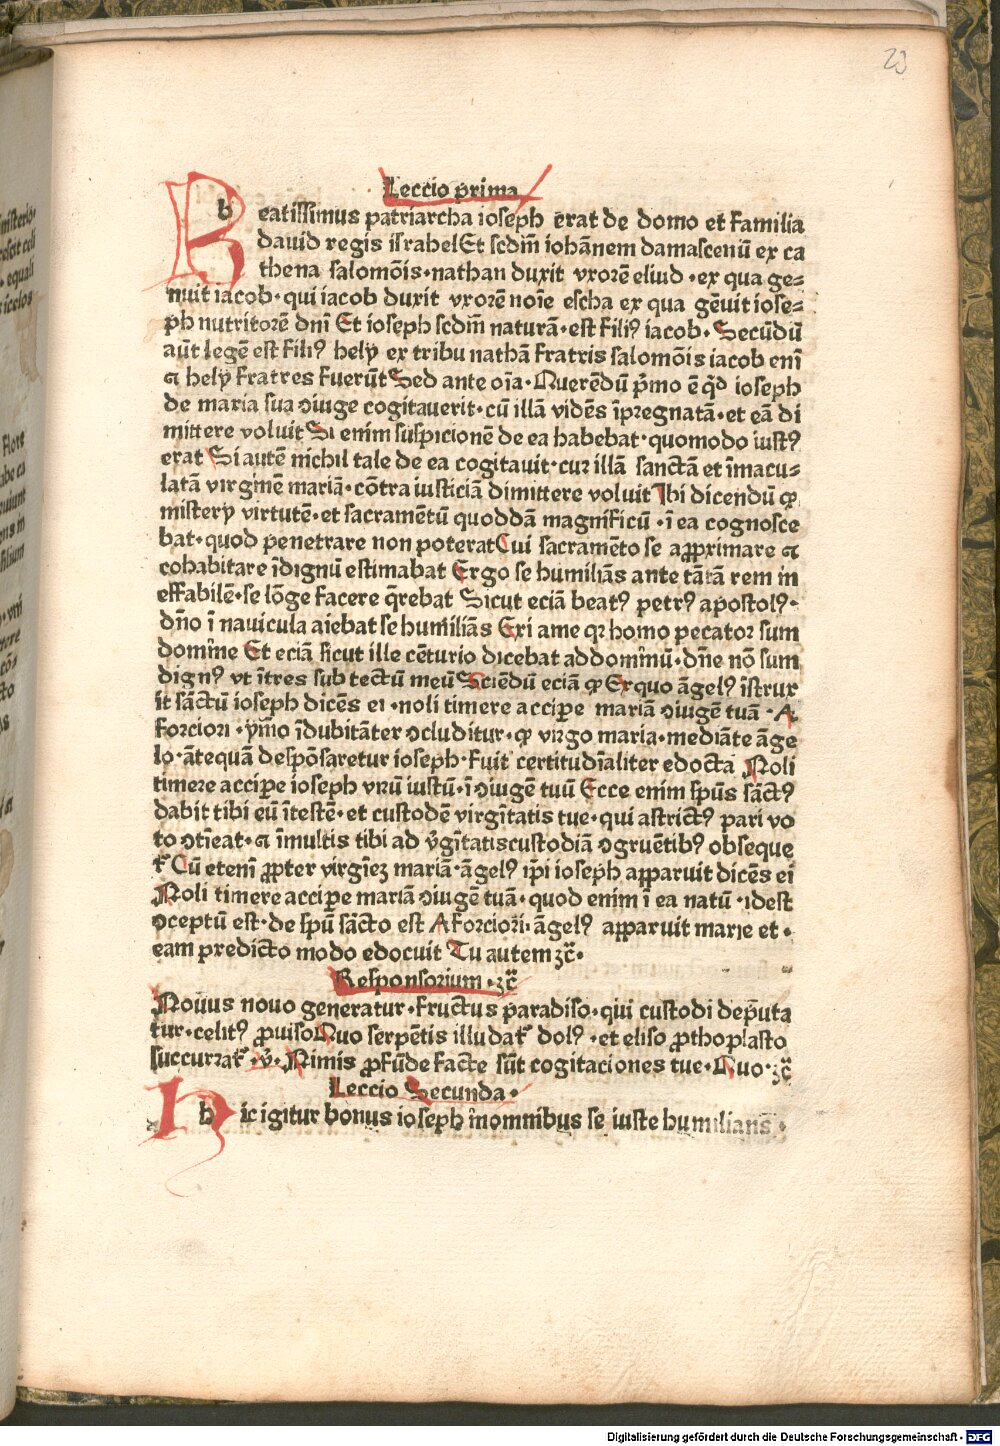 23
Leccio prima
beatissimus patriarcha ioseph erat de domo et familia
dauid regis israhel Et scdm̄ iohānem damascenū ex ca
thena salomōis·nathan duxit vxorē eliud·ex qua ge⸗
nuit iacob·qui iacob duxit vxorē noīe escha ex qua gēuit iose⸗
ph nutritorē dnī Et ioseph scdm̄ naturā·est filiꝰ iacob·Secūdū
aūt legē est filiꝰ hely ex tribu nathā fratris salomōis iacob enī
⁊ hely fratres fuerūt Sed ante oīa·Querēdū pͥmo ē qͥd ioseph
de maria sua ꝯiuge cogitauerit·cū illā vidēs īpregnatā·et eā di
mittere voluit Si enim suspicionē de ea habebat·quomodo iustꝰ
erat Si autē nichil tale de ea cogitauit·cur illā sanctā et īmacu⸗
latā virginē mariā·cōtra iusticiā dimittere voluit Ibi dicendū ꝙ
mistery virtutē·et sacramētū quoddā magnificū·ī ea cognosce
bat·quod penetrare non poterat Cui sacramēto se aꝓximare ⁊
cohabitare īdignū estimabat Ergo se humiliās ante tātā rem in
effabilē·se lōge facere q̄rebat Sicut eciā beatꝰ petrꝰ apostolꝰ·
dn̄o ī nauicula aiebat se humiliās Exi ame qr homo pecator sum
domine Et eciā sicut ille cēturio dicebat ad dominū·dn̄e nō sum
dignꝰ vt ītres sub tectū meū Sciēdū eciā ꝙ Exquo āgelꝰ īstrux
it sāctū ioseph dicēs ei·noli timere accipe mariā ꝯiugē tuā·A
forciori·ymo īdubitāter ꝯcluditur·ꝙ virgo maria·mediāte āge
lo·ātequā despōsaretur ioseph·fuit certitudīaliter edocta Noli
timere accipe ioseph virū iustū·ī ꝯiugē tuū Ecce enim spūs sāctꝰ
dabit tibi eū ītestē·et custodē virgītatis tue·qui astrictꝰ pari vo
to ꝯtīeat·⁊ īmultis tibi ad v̓gītatis custodiā ꝯgruētibꝰ obseque
t᷑ Cū etenī ꝓpter virgīeꝫ mariā·āgelꝰ ipī ioseph apparuit dicēs ei
Noli timere accipe mariā ꝯiugē tuā·quod enim ī ea natū·idest
ꝯceptū est·de spū sācto est A forciori·āgelꝰ apparuit marie et·
eam predicto modo edocuit Tu autem ꝛc̄·
Responsorium·ꝛc̄
Nouus nouo generatur·fructus paradiso·qui custodi depūta
tur·celitꝰ ꝓuiso Quo serpētis illudat᷑ dolꝰ·et eliso ꝓthoplasto
succurrat᷑·v̓·Nimis ꝓfūde facte sūt cogitaciones tue·Quo·ꝛc̄
Leccio Secunda·
hic igitur bonus ioseph inomnibus se iuste humilians·
Digitalisierung gefördert durch die Deutsche Forschungsgemeinschaft - DFG